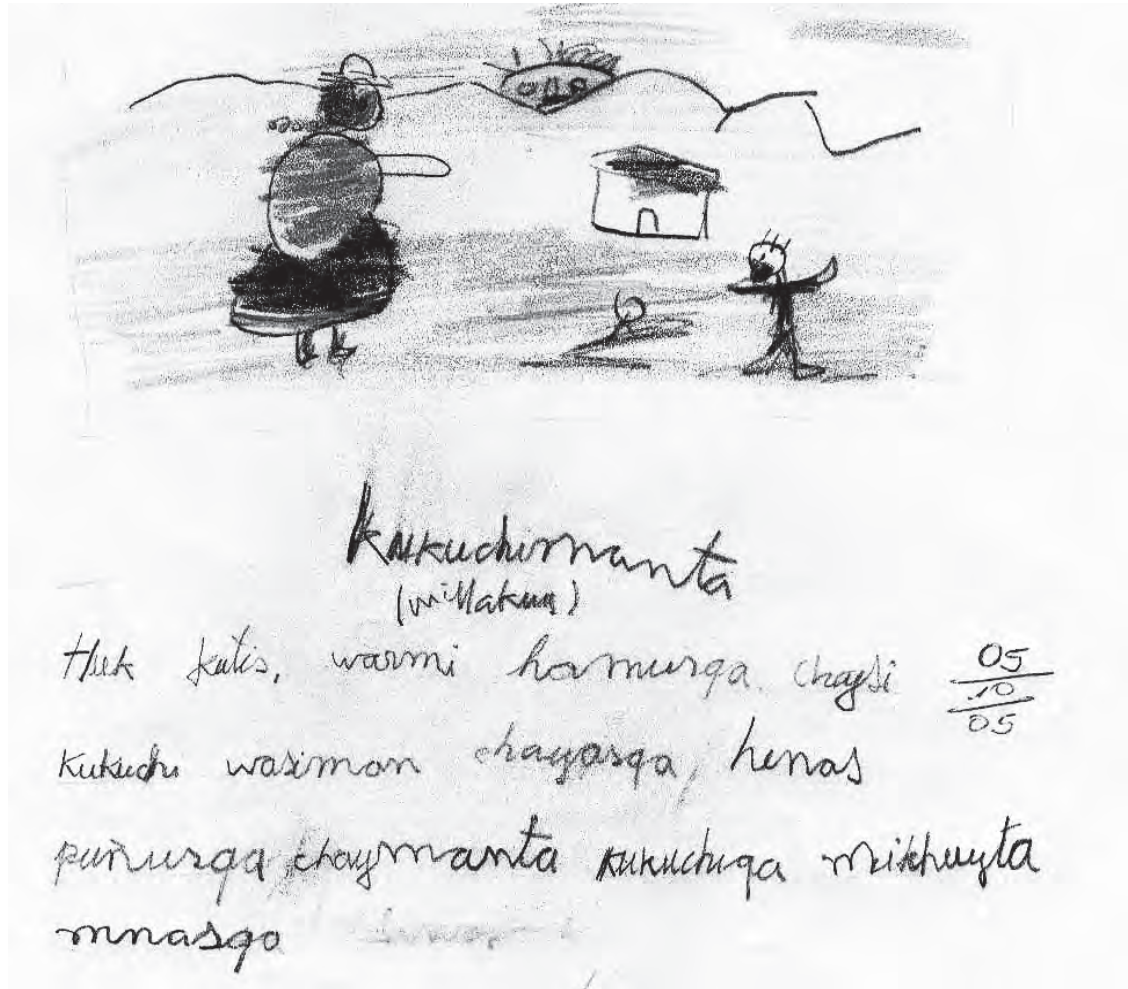 Kukuchimanta
(willakuy)
Huk kutis, warmi hamurqa. chaysi
05
10
05
kukuchi wasiman chayasqa, hinas
puñurqa, chaymanta kukuchuqa mikhuyta
mnasqa